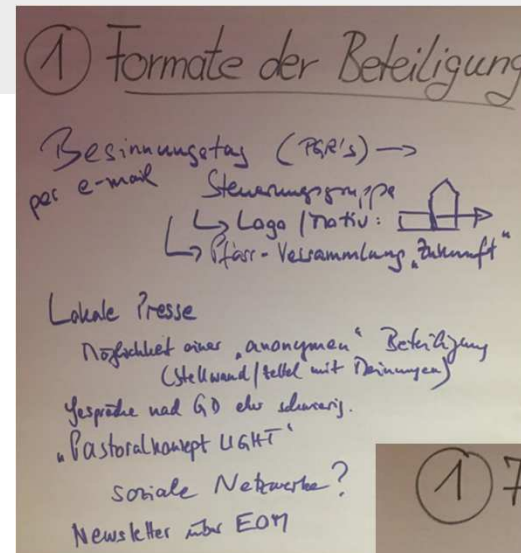 ① Formate der Beteiligung
Besinnungstag (PGR's) →
per e-mail Steuerungsgruppe
↳ Logo / Motiv:
↳ Pfarr-Versammlung „Zukunft"
Lokale Presse
Möglichkeit einer „anonymen" Beteiligung
(Stellwand / Zettel mit Meinungen)
Gespräche nach GD eher schwierig.
„Pastoralkonzept LIGHT"
soziale Netzwerke?
Newsletter über EOM
① 7